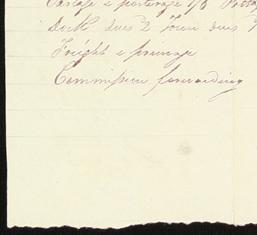 Cartage & porterage 7/6
Dock dues 2 Town dues
Freight & primage
Commission forwarding